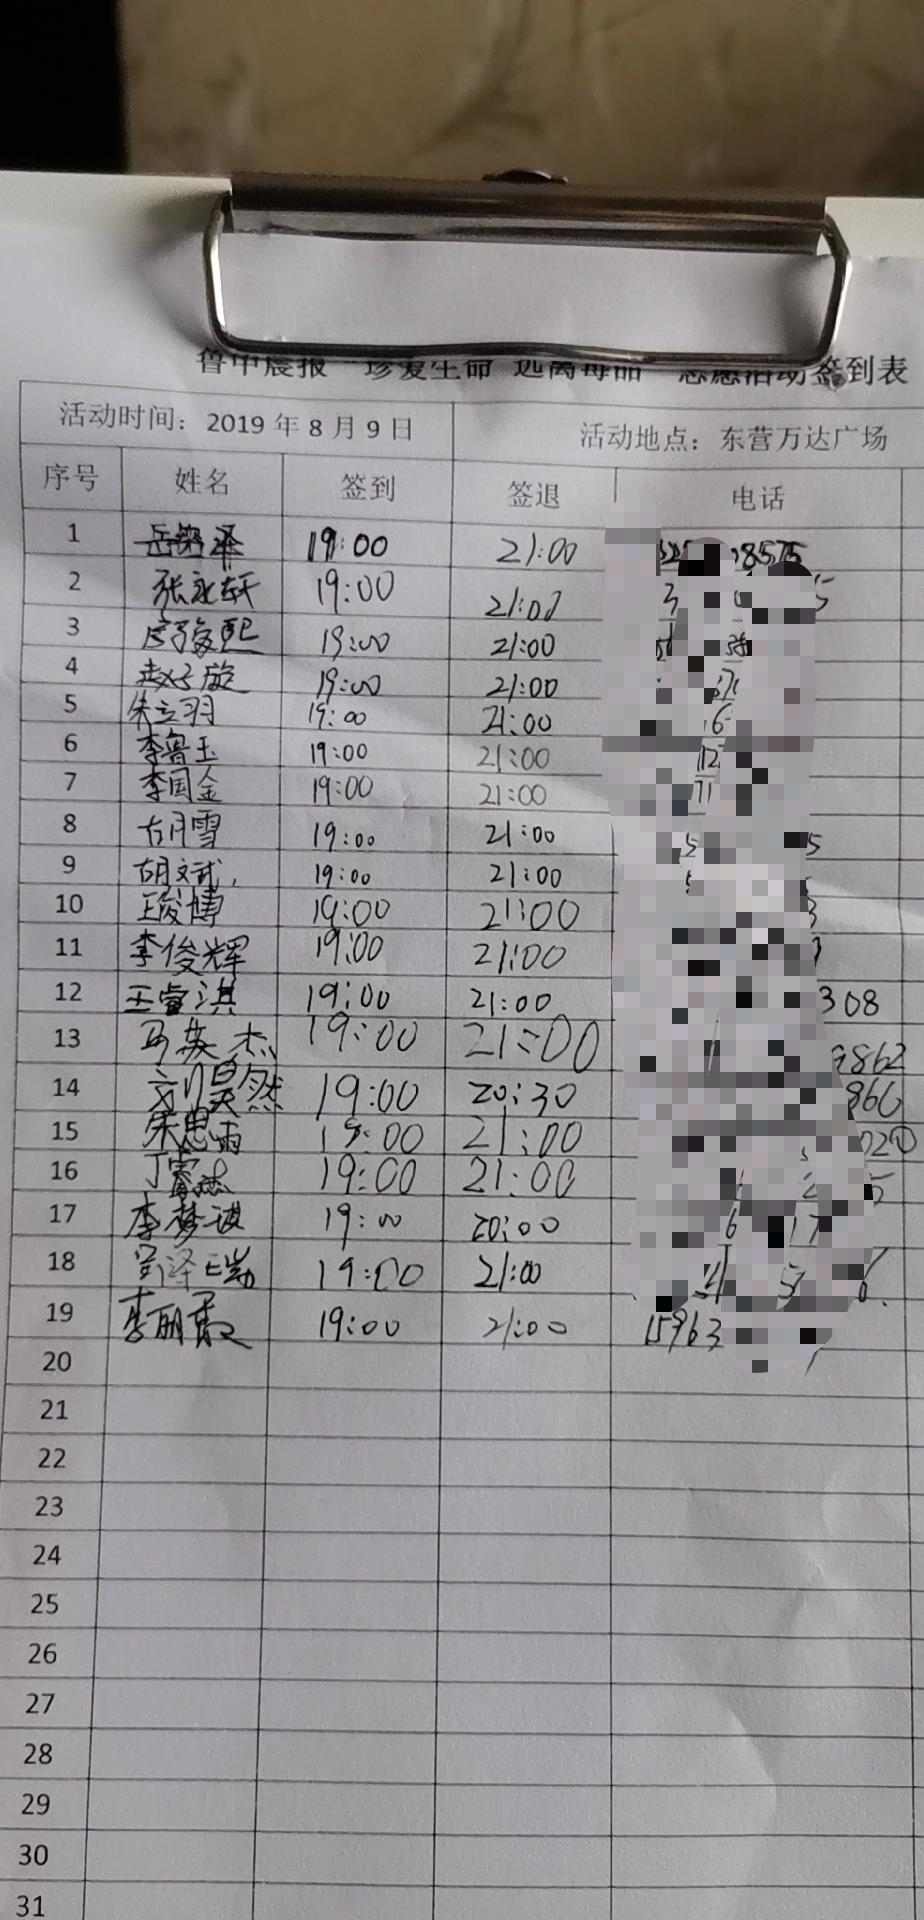 鲁中晨报 珍爱生命 远离毒品 志愿活动签到表
活动时间：2019年8月9日 活动地点：东营万达广场
序号 姓名 签到 签退 电话
1 19:00 21:00 8575
2 张永轩 19:00 21:00
3 19:00 21:00
4 赵子旋 19:00 21:00
5 朱立羽 19:00 21:00
6 李鲁玉 19:00 21:00
7 李国金 19:00 21:00
8 胡雪 19:00 21:00
9 胡文斌 19:00 21:00
10 王俊博 19:00 21:00
11 李俊辉 19:00 21:00
12 王睿淇 19:00 21:00 308
13 马英杰 19:00 21:00 9862
14 刘昊然 19:00 20:30 866
15 朱思雨 19:00 21:00
16 丁睿 19:00 21:00
17 李梦琪 19:00 20:00
18 19:00 21:00
19 李丽霞 19:00 21:00 15963
20
21
22
23
24
25
26
27
28
29
30
31